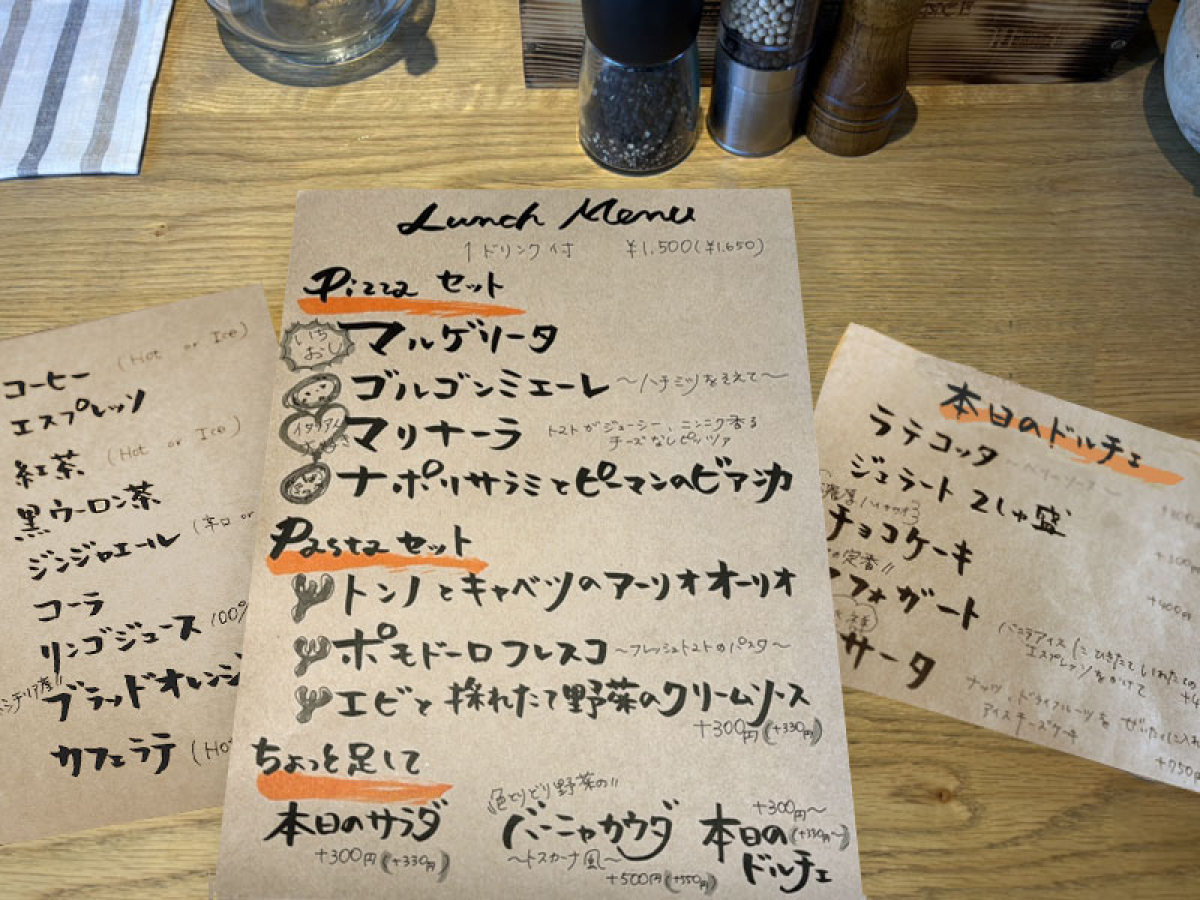 Lunch Menu
↑ドリンク付 ¥1,500(¥1,650)
Pizza セット
いち
おし
マルゲリータ
ゴルゴンミエーレ 〜ハチミツをそえて〜
マリナーラ トマトがジューシー、ニンニク香る
チーズなしピッツァ
ナポリサラミとピーマンのビアンカ
Pasta セット
トンノとキャベツのアーリオオーリオ
ポモドーロフレスコ 〜フレッシュトマトのパスタ〜
エビと採れたて野菜のクリームソース
+300円(+330円)
ちょっと足して
本日のサラダ
+300円(+330円)
色とりどり野菜の!!
バーニャカウダ
〜トスカーナ風〜
+500円(+550円)
+300円〜
(+330円〜)
本日の
ドルチェ
コーヒー (Hot or Ice)
エスプレッソ
紅茶 (Hot or Ice)
黒ウーロン茶
ジンジャエール (辛口 or
コーラ
リンゴジュース 100%
ブラッドオレンジ
カフェラテ (Hot
本日のドルチェ
ラテコッタ
ジェラート 2しゅ盛
チョコケーキ
の定番!!
フォガート
バニラアイスにひきたていれたての
エスプレッソをかけて
サータ
ナッツ、ドライフルーツをぜいたくに入れ
アイスチーズケーキ